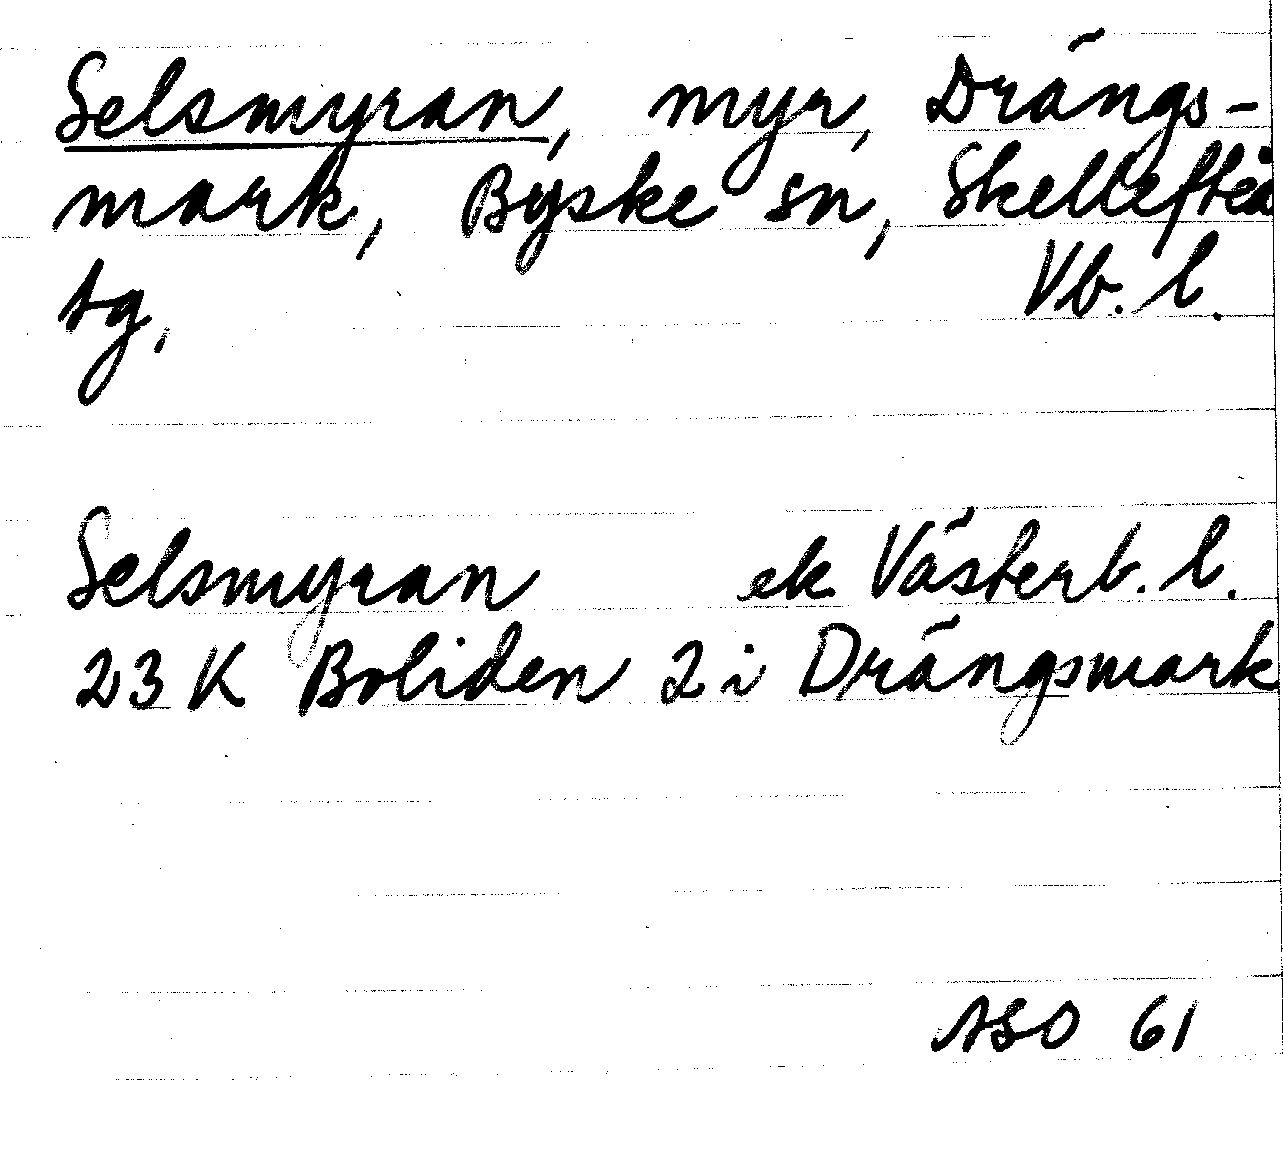 Selsmyran, myr, Drängs-
mark, Byske sn, Skellefteå
tg, Vb. l.
Selsmyran ek. Västerb. l.
23 K Boliden 2 i Drängsmark
ASO 61